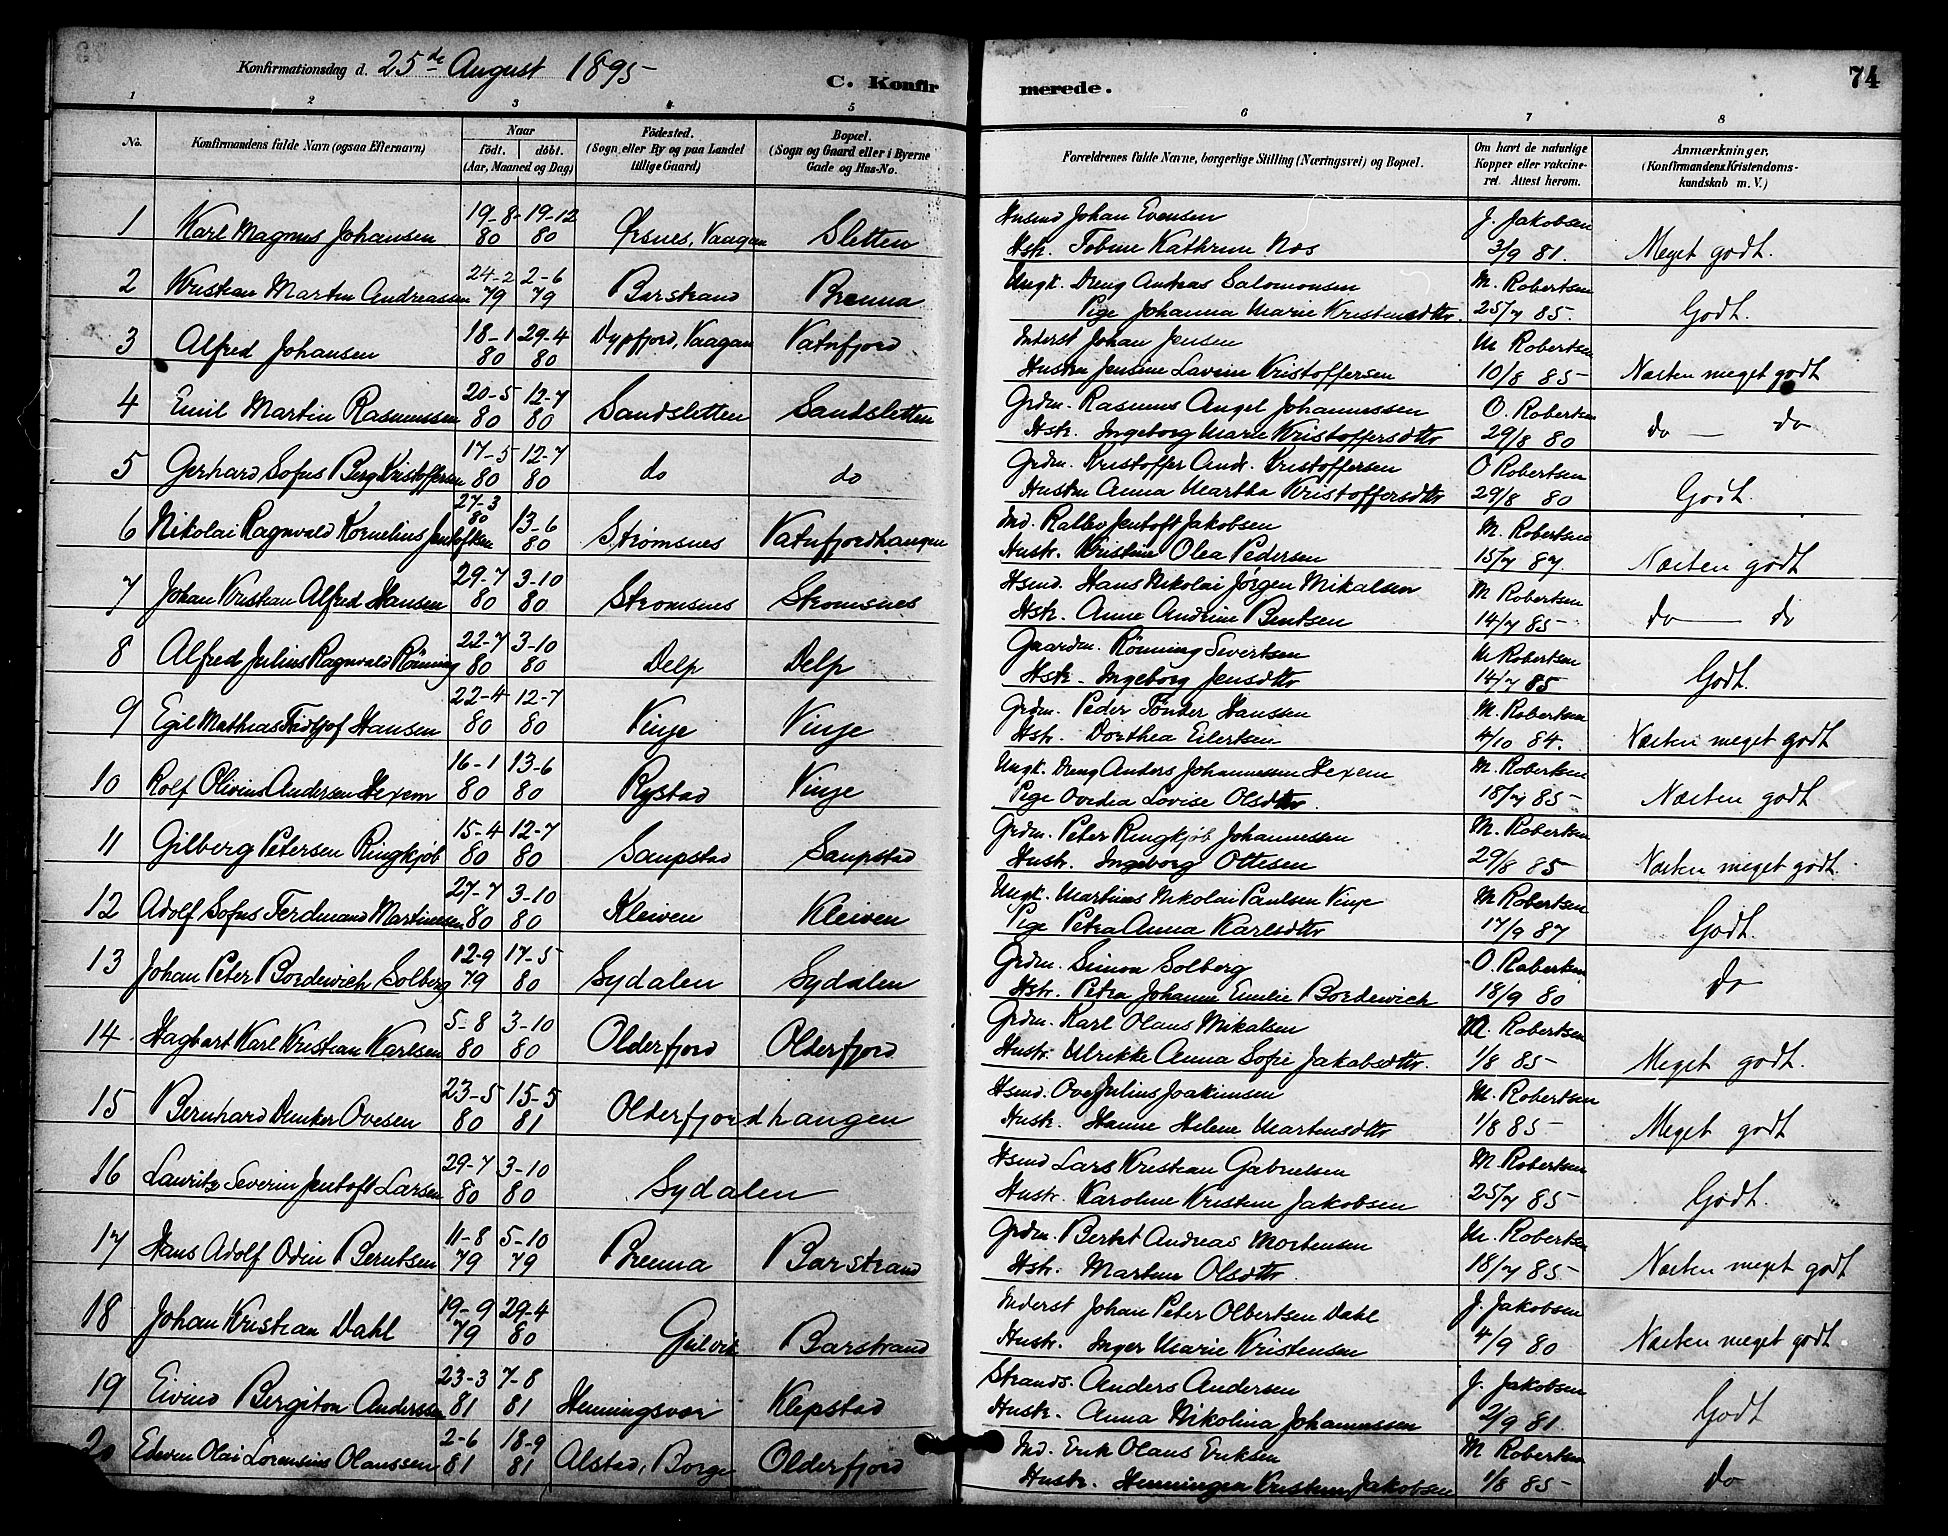 Konfirmationsdag d. 25de August 1895
C. Konfirmerede.
74
1 2 3 4 5 6 7 8
No. | Konfirmandens fulde Navn (ogsaa Efternavn) | Naar födt. döbt. (Aar, Maaned og Dag) | Födested. (Sogn eller By og paa Landet tillige Gaard) | Bopæl. (Sogn og Gaard eller i Byerne Gade og Hus-No. | Forældrenes fulde Navne, borgerlige Stilling (Næringsvei) og Bopæl. | Om havt de naturlige Kopper eller vakcineret. Attest herom. | Anmærkninger. (Konfirmandens Kristendomskundskab m. V.)
1 Karl Magnus Johansen 19-8 80 19-12 80 Ørsnes, Vaagan Sletten Husmd Johan Evensen J. Jakobsen
Hstr. Tobine Kathrine Næs 3/9 81. Meget godt.
2 Kristian Martin Andreassen 24-2 79 2-6 79 Barstrand Brenna Ungk. Dreng Andreas Salomonsen M. Robertsen
Pige Johanna Marie Kristensdtr. 25/7 85. Godt.
3 Alfred Johansen 18-1 80 29-4 80 Dypfjord, Vaagan Vatnfjord Inderst Johan Jensen M Robertsen
Hustru Jensine Lavine Kristoffersen 10/8 85 Næsten meget godt
4 Emil Martin Rasmussen 20-5 80 12-7 80 Sandsletten Sandsletten Grdm. Rasmus Angel Johannessen O. Robertsen
Hstr. Ingeborg Marie Kristoffersdtr 29/8 80 do — do
5 Gerhard Sofus Berg Kristoffersen 17-5 80 12-7 80 do do Grdm. Kristoffer Andr. Kristoffersen O Robertsen
Hustru Anna Martha Kristoffersdtr 29/8 80 Godt.
6 Nikolai Ragnvald Kornelius Jentoftsen 27-3 80 13-6 80 Strømsnes Vatnfjordhangen Ind. Jentoft Jakobsen M. Robertsen
Hustr. Kristine Olea Pedersen 15/7 87. Næsten godt
7 Johan Kristian Alfred Hansen 29-7 80 3-10 80 Strømsnes Strømsnes Hsmd. Hans Nikolai Jørgen Mikalsen M Robertsen
Hstr. Anne Andrine Bentsen 14/7 85 do — do
8 Alfred Julius Ragnvald Rönning 22-7 80 3-10 80 Delp Delp Gaardm. Rönning Severtsen M Robertsen
Hstr. Ingeborg Jensdtr 14/7 85 Godt.
9 Egil Mathias Fridtjof Hansen 22-4 80 12-7 80 Vinje Vinje Grdm. Peder Tönder Hanssen M. Robertsen
Hstr. Dorthea Eilertsen 4/10 84. Næsten meget godt
10 Rolf Olivius Andersen Hexem 16-1 80 13-6 80 Rystad Vinje Ungk. Dreng Anders Johannessen Hexem M. Robertsen
Pige Ovedia Lovise Olsdtr. 18/7 85 Næsten godt
11 Gilberg Petersen Ringkjöb 15-4 80 12-7 80 Saupstad Saupstad Grdm. Peter Ringkjöb Johannessen M. Robertsen
Hustr. Ingeborg Ottesen 29/8 85 Næsten meget godt.
12 Adolf Sofus Ferdinand Martinussen 27-7 80 3-10 80 Kleiven Kleiven Ungk. Martinus Nikolai Paulsen Vinje M Robertsen
Pige Petra Anna Karlsdtr 17/9 87 Godt.
13 Johan Peter Bordewich Solberg 12-9 79 17-5 80 Sydalen Sydalen Grdm. Simon Solberg O. Robertsen
Hstr. Petra Johanne Emilie Bordewich 18/9 80 Do
14 Hagbart Karl Kristian Karlsen 5-8 80 3-10 80 Olderfjord Olderfjord Grdm. Karl Olaus Mikalsen M. Robertsen
Hustr. Ulrikke Anna Sofie Jakobsdtr. 1/8 85 Meget godt.
15 Bernhard Ovesen 23-5 80 15-5 81 Olderfjordhangen Hsmd. Ove Julius Joakimsen M. Robertsen
Hustr. Hanne Helene Martensdtr 1/8 85 Meget godt
16 Lauritz Severin Jentoft Larsen 29-7 80 3-10 80 Sydalen Hsmd Lars Kristian Gabrielsen M. Robertsen
Hustr. Karoline Kristine Jakobsen 25/7 85 Godt.
17 Hans Adolf Odin Berntsen 11-8 79 5-10 79 Brenna Barstrand Grdm. Berht Andreas Mortensen M. Robertsen
Hstr. Martine Olsdtr. 18/7 85 Næsten meget godt
18 Johan Kristian Dahl 19-9 79 29-4 80 Gulvik Barstrand Inderst Johan Peter Olbertsen Dahl J. Jakobsen
Hustr. Inger Marie Kristensen 4/9 80 Næsten meget godt
19 Eivind Bergiton Andersen 23-3 81 7-8 81 Henningsvær Klepstad Strands. Anders Andersen J. Jakobsen
Hustr. Anna Nikolina Johannessen 2/9 81. Godt
20 Edevin Olai Lorensius Olaussen 2-6 81 18-9 81 Alstad, Borge Olderfjord Ind. Erik Olaus Eriksen M Robertsen
Hustr. Henningea Kristine Jakobsen 1/8 85 Do